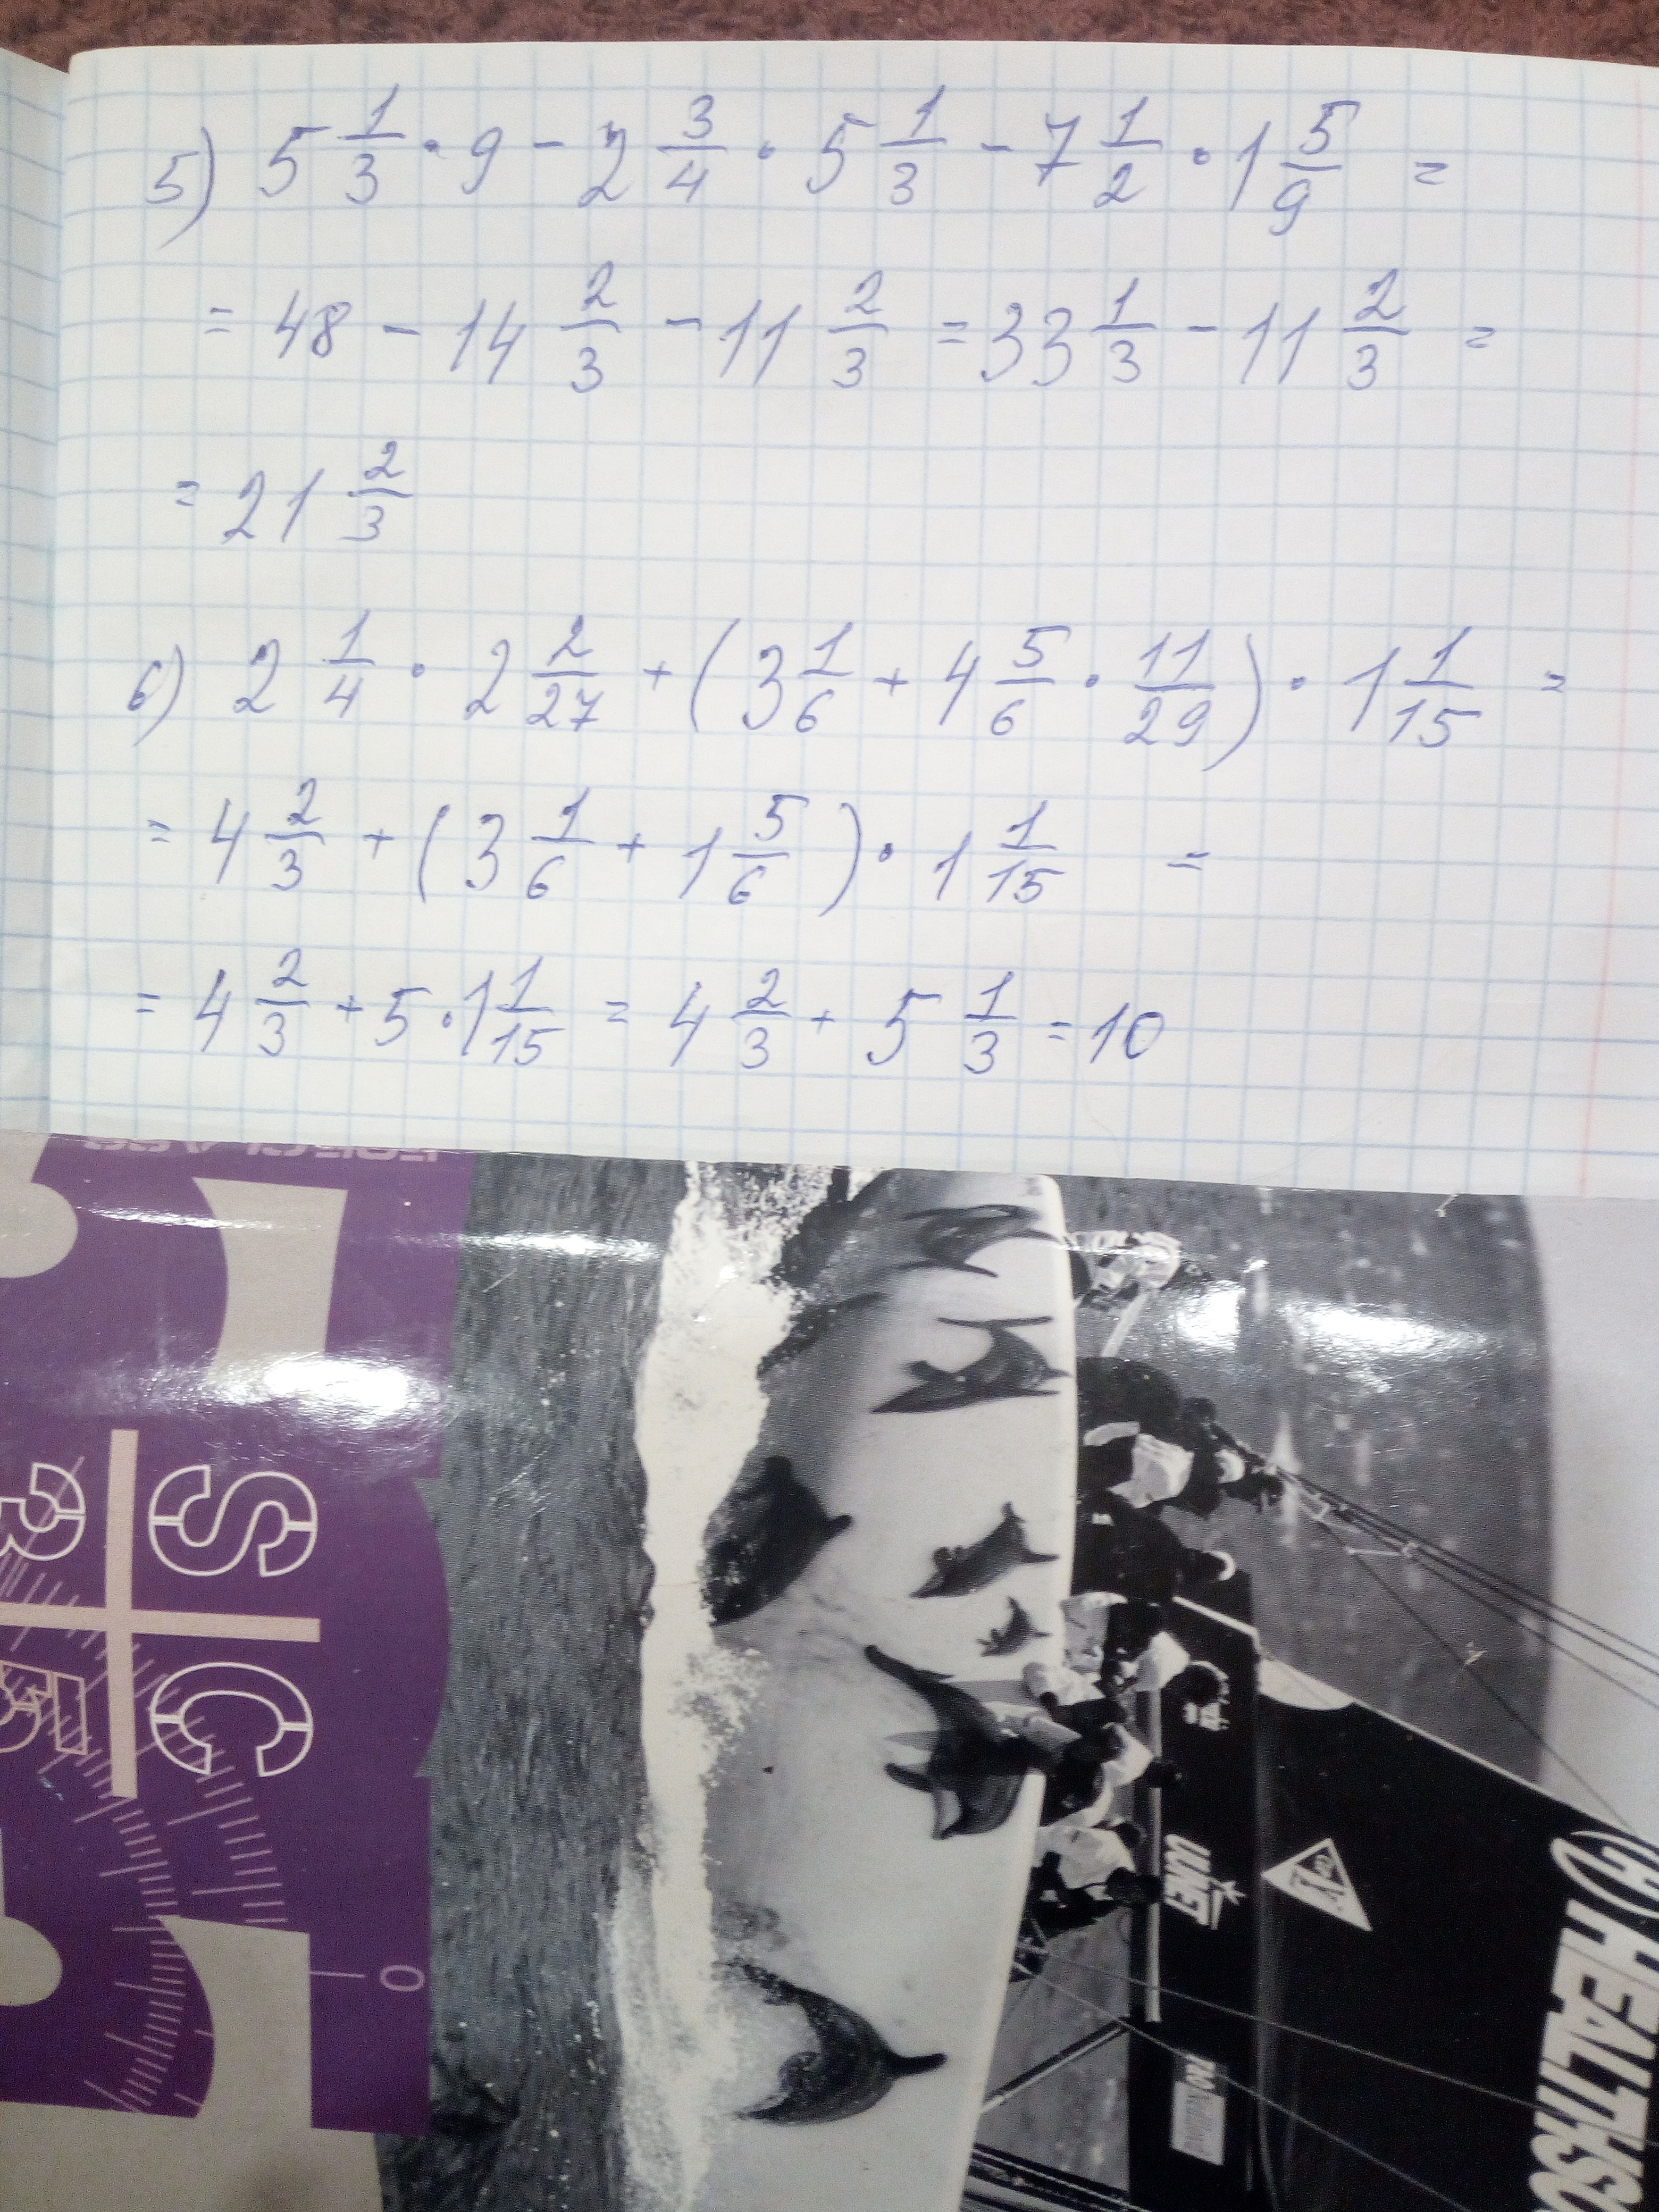 5) 5 1/3 · 9 - 2 3/4 · 5 1/3 - 7 1/2 · 1 5/9 =
= 48 - 14 2/3 - 11 2/3 = 33 1/3 - 11 2/3 =
= 21 2/3
6) 2 1/4 · 2 2/27 + (3 1/6 + 4 5/6 · 11/29) · 1 1/15 =
= 4 2/3 + (3 1/6 + 1 5/6) · 1 1/15 =
= 4 2/3 + 5 · 1 1/15 = 4 2/3 + 5 1/3 = 10
S C
0